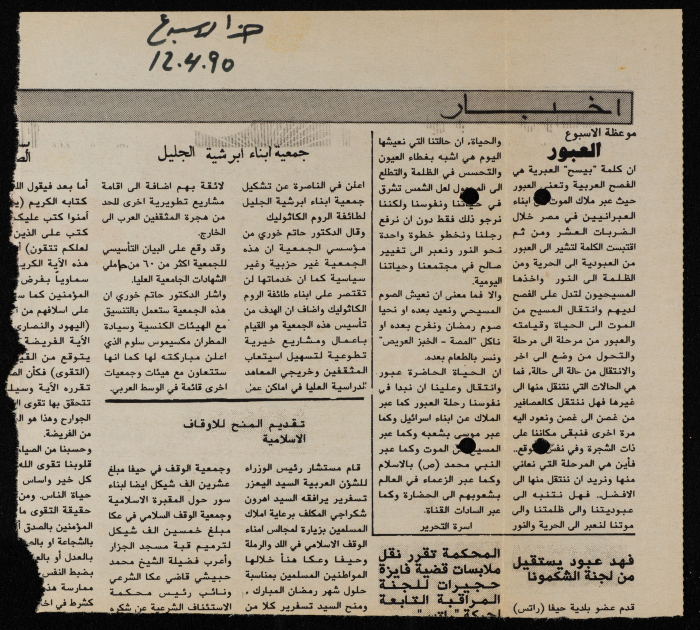 هذا الاسبوع
12.4.90
اخبار
موعظة الاسبوع
العبور
ان كلمة "بيسح" العبرية هي
الفصح العربية وتعني العبور
حيث عبر ملاك الموت ابناء
العبرانيين في مصر خلال
الضربات العشر ومن ثم
اقتبست الكلمة لتشير الى العبور
من العبودية الى الحرية ومن
الظلمة الى النور واخذها
المسيحيون لتدل على الفصح
لديهم وانتقال المسيح من
الموت الى الحياة وقيامته
والعبور من مرحلة الى مرحلة
والتحول من وضع الى اخر
والانتقال من حالة الى حالة، فما
هي الحالات التي ننتقل منها الى
غيرها فهل ننتقل كالعصافير
من غصن الى غصن ونعود اليه
مرة اخرى فنبقى مكاننا على
ذات الشجرة وفي نفس
فأين هي المرحلة التي نعاني
منها ونريد ان ننتقل منها الى
الافضل.. فهل نتنبه الى
عبوديتنا والى ظلمتنا والى
موتنا لنعبر الى الحرية والنور
والحياة، ان حالتنا التي نعيشها
اليوم هي اشبه بغطاء العيون
والتحسس في الظلمة والتطلع
الى لعل الشمس تشرق
في حياتنا ونفوسنا ولكننا
نرجو ذلك فقط دون ان نرفع
رجلنا ونخطو خطوة واحدة
نحو النور ونعبر الى تغيير
صالح في مجتمعنا وحياتنا
اليومية.
والا فما معنى ان نعيش الصوم
المسيحي ونعيد بعده او نحيا
صوم رمضان ونفرح بعده او
ناكل "المصة - الخبز العريص"
ونسر بالطعام بعده.
ان الحياة الحاضرة عبور
وانتقال وعلينا ان نبدا في
نفوسنا رحلة العبور كما عبر
الملاك عن ابناء اسرائيل وكما
عبر موسى بشعبه وكما عبر
المسيح الموت وكما عبر
النبي محمد (ص) بالاسلام
وكما عبر الزعماء في العالم
بشعوبهم الى الحضارة وكما
عبر السادات القناة.
اسرة التحرير
جمعية ابناء ابرشية الجليل
اعلن في الناصرة عن تشكيل
جمعية ابناء ابرشية الجليل
لطائفة الروم الكاثوليك
وقال الدكتور حاتم خوري ان
مؤسسي الجمعية ان هذه
الجمعية غير حزبية وغير
سياسية كما ان خدماتها لن
تقتصر على ابناء طائفة الروم
الكاثوليك واضاف ان الهدف من
تأسيس هذه الجمعية هو القيام
باعمال ومشاريع خيرية
تطوعية لتسهيل استيعاب
المثقفين وخريجي المعاهد
الدراسية العليا في اماكن عمل
لائقة بهم اضافة الى اقامة
مشاريع تطويرية اخرى للحد
من هجرة المثقفين العرب الى
الخارج.
وقد وقع على البيان التأسيسي
للجمعية اكثر من ٦٠ من حاملي
الشهادات الجامعية العليا.
واشار الدكتور حاتم خوري ان
هذه الجمعية ستعمل بالتنسيق
مع الهيئات الكنسية وسيادة
المطران مكسيموس سلوم الذي
اعلن مباركته لها كما انها
ستتعاون مع هيئات وجمعيات
اخرى قائمة في الوسط العربي.
تقديم المنح للاوقاف
الاسلامية
قام مستشار رئيس الوزراء
للشؤون العربية السيد اليعزر
تسفرير يرافقه السيد اهرون
شكراجي المكلف برعاية املاك
المسلمين بزيارة لمجالس امناء
الوقف الاسلامي في اللد والرملة
وحيفا وعكا هنأ خلالها
المواطنين المسلمين بمناسبة
حلول شهر رمضان المبارك ,
ومنح السيد تسفرير كلا من
وجمعية الوقف في حيفا مبلغ
عشرين الف شيكل ايضا لبناء
سور حول المقبرة الاسلامية
وجمعية الوقف السلامي في عكا
مبلغ خمسين الف شيكل
لترميم قبة مسجد الجزار
وأعرب فضيلة الشيخ محمد
حبيشي قاضي عكا الشرعي
ونائب رئيس محكمة
الاستئناف الشرعية عن شكره
فهد عبود يستقيل
من لجنة الشكمونا
قدم عضو بلدية حيفا (راتس)
المحكمة تقرر نقل
ملابسات قضية فايزة
حجيرات للجنة
المراقبة التابعة
لحركة "راتس"
أما بعد فيقول الله
كتابه الكريم
آمنوا كتب عليكم
كتب على الذين
لعلكم تتقون)
هذه الآية الكريمة
سماوياً بفرض
المؤمنين كما
على اسلافهم من
(اليهود والنصارى
الآية الفريضة
يتوقع من القيام
(التقوى) فكأن
تقرره الآية وسيلة
تتحقق بها تقوى
الجوارح وهذا هو
من الفريضة.
وحسبنا من الصيام
قلوبنا تقوى الله
كل خير واساس
حياة الناس. ومن
حقيقة التقوى ما
المؤمنين بالصدق
بالشجاعة او
بالعدل أو
بضبط النفس
ممارسة هذه
كشرط في